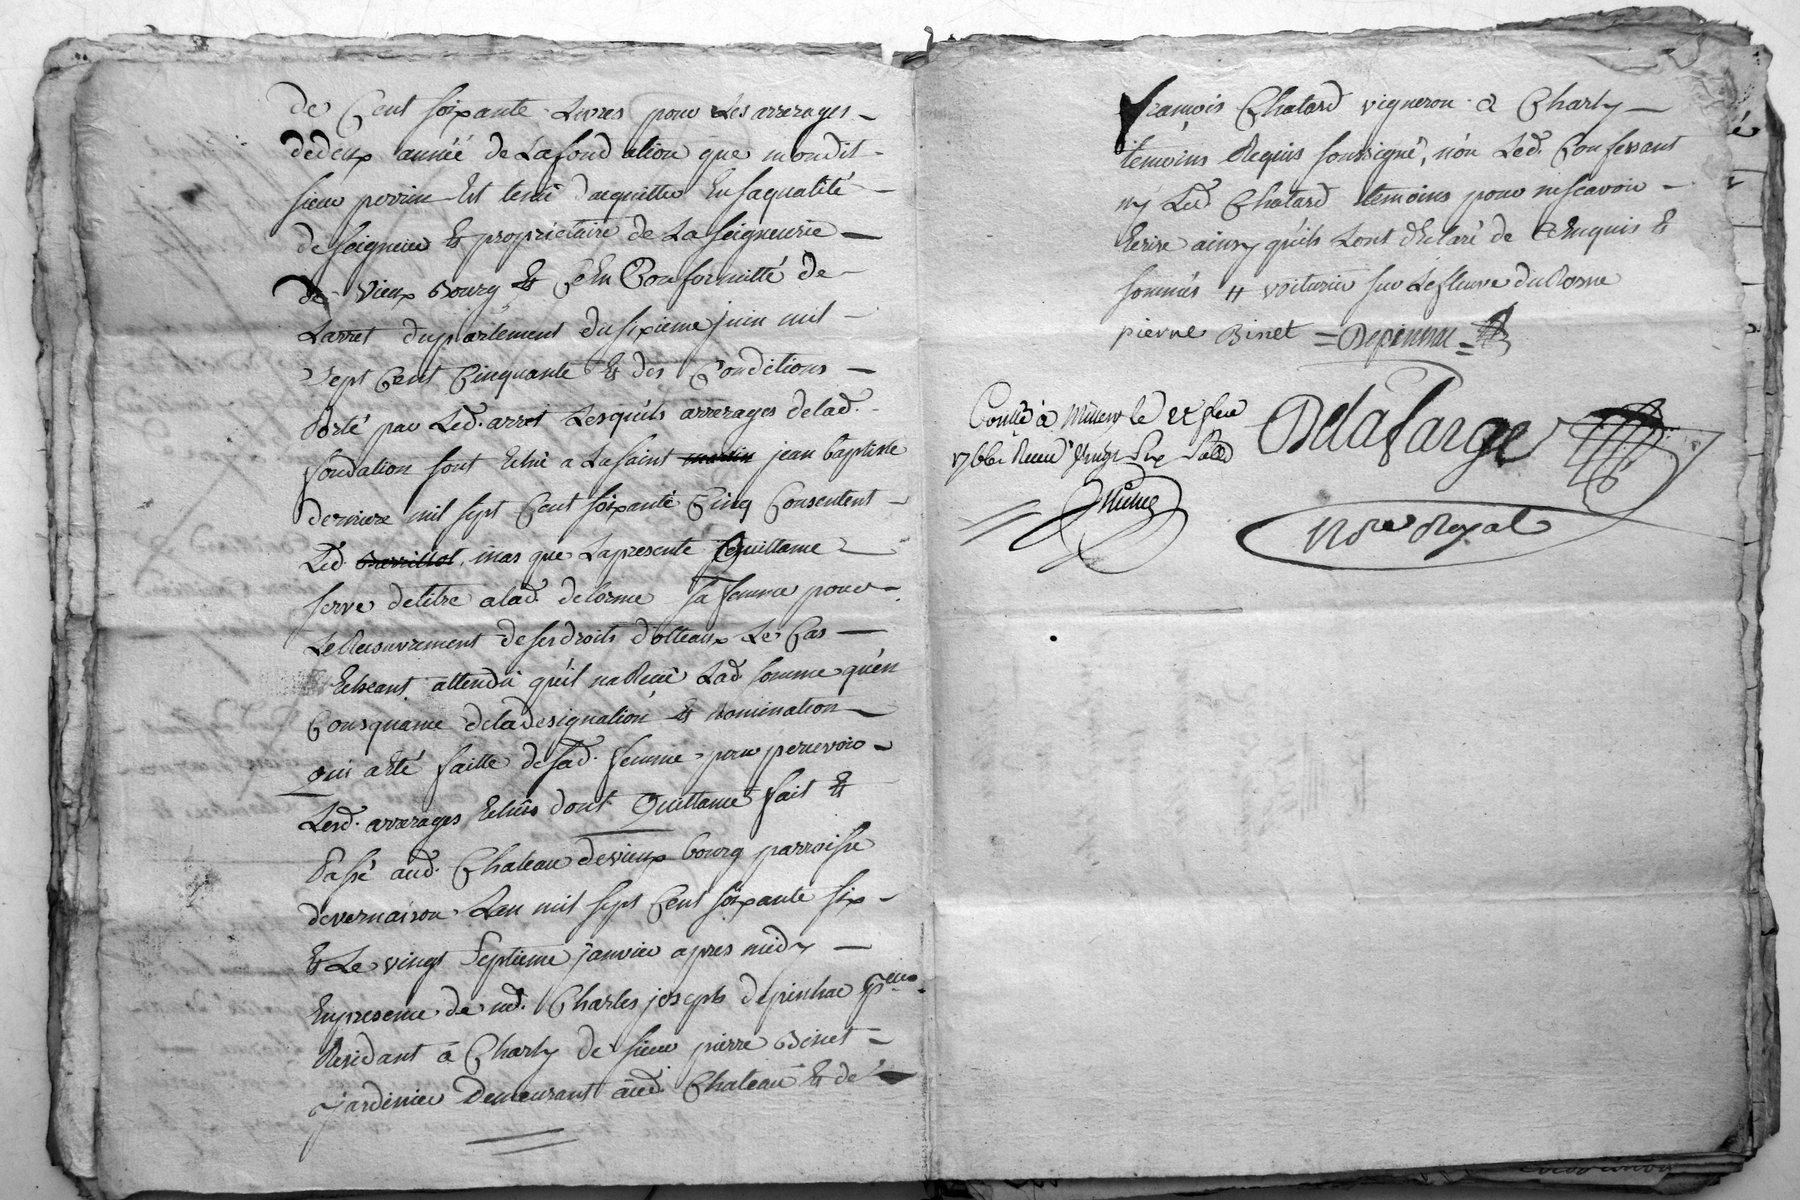 de Cent soixante Livres pour Les arrerages
dedeux année de Lafondation que mondit
sieur perrin Est tenû dacquitter Ensaqualité
de seigneur Et proprietaire de La seigneurie
de Vieux Bourg Et Ce En Conformitté de
Larret duparlement dusixieme juin mil
sept Cent Cinquante Et des Conditions
Porté par Led. arret Lesquels arrerages delad.
fondation sont Echû a Lasaint martin jean baptiste
derniere mil sept Cent soixante Cinq Consentent
Led. mas que Lapresente Quittance
serve detitre alad. delorme sa femme pour
LeRecouvrement desesdroits dotteaux Le Cas
Echeant attendû qu'il naReçû Lad somme qu'en
Consquance deladesignation Et nomination
qui aEté faitte desad. femme pour percevoir
Lesd. arrerages Echûs dont Quittance fait Et
Passé aud. Chateau devieux bourg parroisse
devernaison Lan mil sept Cent soixante six
Et Le vingt septieme janvier apres midy
Enpresence de md. Charles joseph depinhac
Residant à Charly de sieur pierre Binet
jardinier Demeurant aud. Chateau Et de
francois Chatard vigneron a Charly
temoins Requis soussigné, nón Led. Confessant
ny Led. Chatard temoins pour nescavoir
Ecrire ainsy qu'ils Lont declaré de Enquis Et
sommés # voiturier sur Lefleuve duRosne
pierre Binet = Depinhac =
Conllé à Millery le feu
1766 Reçeu Vingt Six
Delafarge
Nore Royal